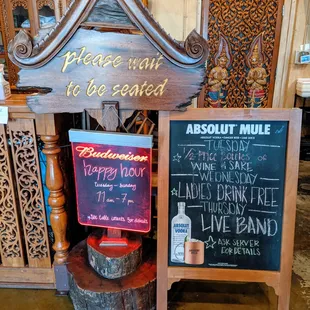 Please wait
to be seated
Budweiser
happy hour
Tuesday - Sunday
11am - 7pm
ABSOLUT MULE
TUESDAY
1/2 Price Bottles of
WINE & SAKE
WEDNESDAY
LADIES DRINK FREE
THURSDAY
LIVE BAND
ASK SERVER
FOR DETAILS